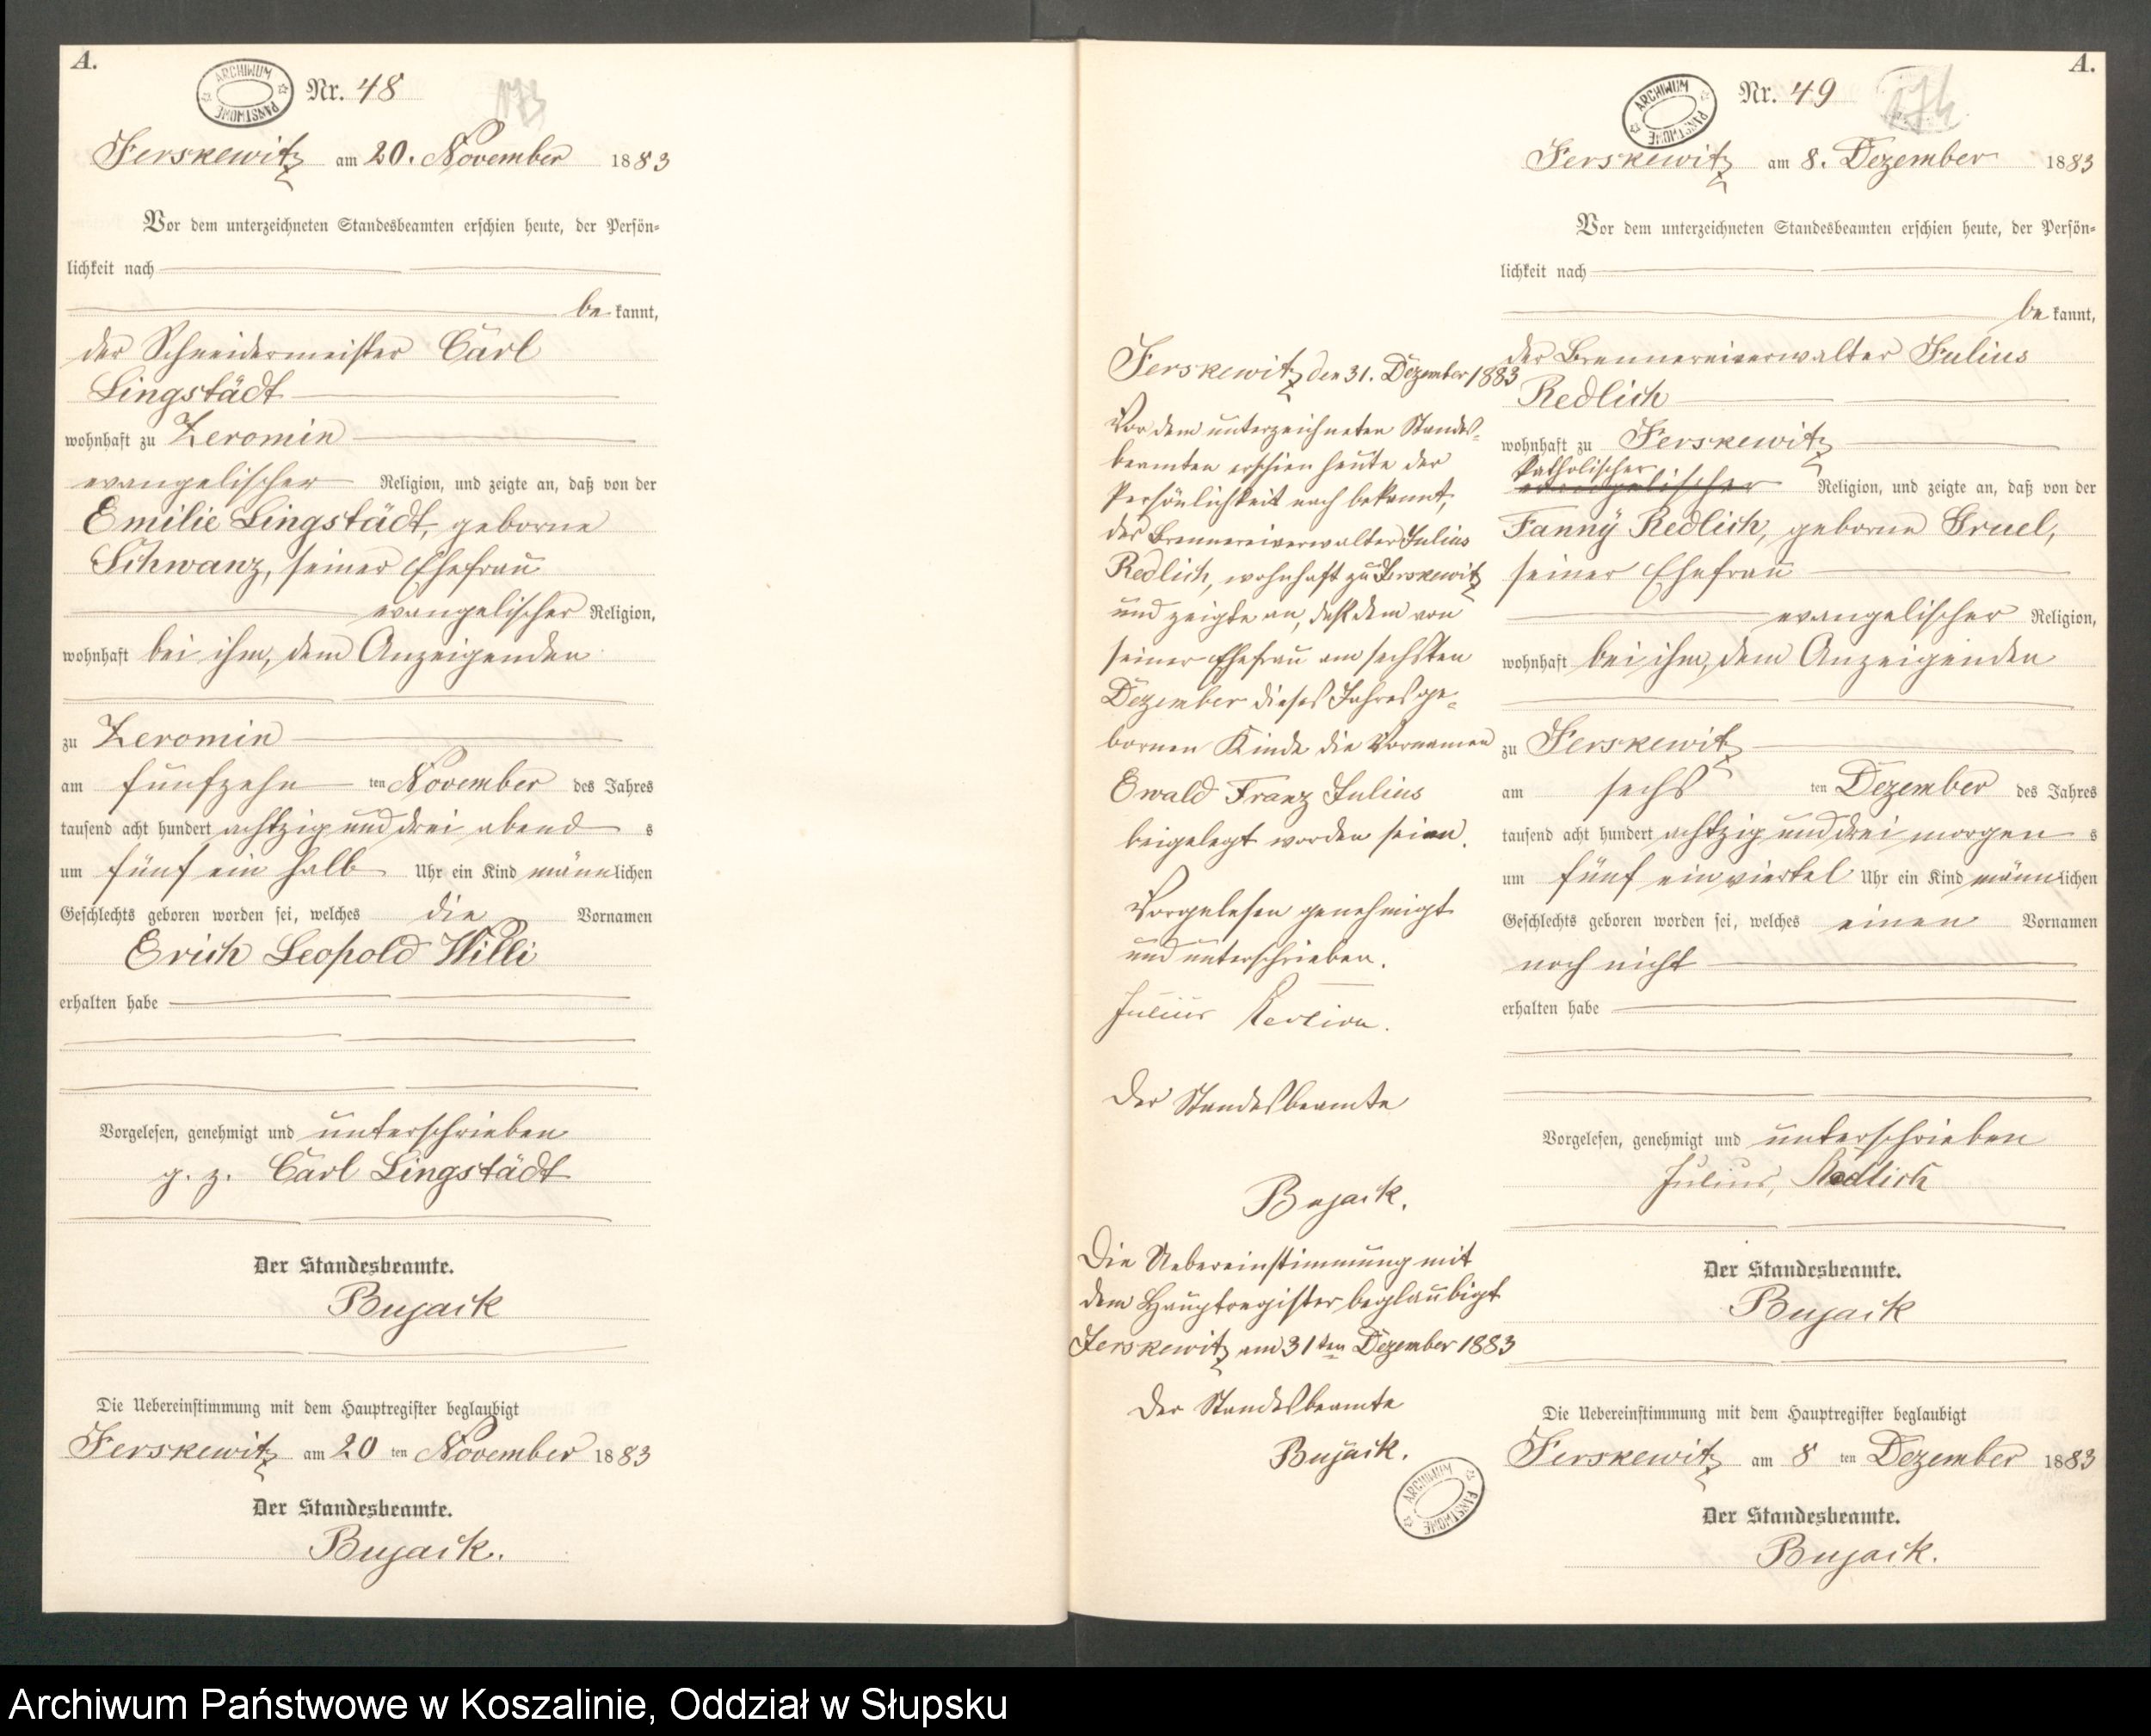 A.
ARCHIWUM PAŃSTWOWE
Nr. 48
173
Jerskewitz am 20. November 1883
Vor dem unterzeichneten Standesbeamten erschien heute, der Persön-
lichkeit nach
bekannt,
der Schneidermeister Carl
Lingstädt
wohnhaft zu Zeromin
evangelischer Religion, und zeigte an, daß von der
Emilie Lingstädt, geborne
Schwanz, seiner Ehefrau
evangelischer Religion,
wohnhaft bei ihm, dem Anzeigenden
zu Zeromin
am fünfzehn ten November des Jahres
tausend acht hundert achtzig und drei abend s
um fünf ein halb Uhr ein Kind männlichen
Geschlechts geboren worden sei, welches die Vornamen
Erich Leopold Willi
erhalten habe
Vorgelesen, genehmigt und unterschrieben
g. z. Carl Lingstädt
Der Standesbeamte.
Bujack
Die Uebereinstimmung mit dem Hauptregister beglaubigt
Jerskewitz am 20 ten November 1883
Der Standesbeamte.
Bujack.
Jerskewitz den 31. Dezember 1883
Vor dem unterzeichneten Standes-
beamten erschien heute der
Persönlichkeit nach bekannt,
der Brennereiverwalter Julius
Redlich, wohnhaft zu Jerskewitz
und zeigte an, daß dem von
seiner Ehefrau am sechsten
Dezember dieses Jahres ge-
bornen Kinde die Vornamen
Ewald Franz Julius
beigelegt worden seien.
Vorgelesen genehmigt
und unterschrieben.
Julius Redlich.
Der Standesbeamte
Bujack.
Die Uebereinstimmung mit
dem Hauptregister beglaubigt
Jerskewitz am 31ten Dezember 1883
Der Standesbeamte
Bujack.
ARCHIWUM PAŃSTWOWE
A.
ARCHIWUM PAŃSTWOWE
Nr. 49
174
Jerskewitz am 8. Dezember 1883
Vor dem unterzeichneten Standesbeamten erschien heute, der Persön-
lichkeit nach
bekannt,
der Brennereiverwalter Julius
Redlich
wohnhaft zu Jerskewitz
katholischer
evangelischer Religion, und zeigte an, daß von der
Fanny Redlich, geborne Gruel,
seiner Ehefrau
evangelischer Religion,
wohnhaft bei ihm, dem Anzeigenden
zu Jerskewitz
am sechs ten Dezember des Jahres
tausend acht hundert achtzig und drei morgen s
um fünf ein viertel Uhr ein Kind männlichen
Geschlechts geboren worden sei, welches einen Vornamen
noch nicht
erhalten habe
Vorgelesen, genehmigt und unterschrieben
Julius Redlich
Der Standesbeamte.
Bujack
Die Uebereinstimmung mit dem Hauptregister beglaubigt
Jerskewitz am 8 ten Dezember 1883
Der Standesbeamte.
Bujack.
Archiwum Państwowe w Koszalinie, Oddział w Słupsku